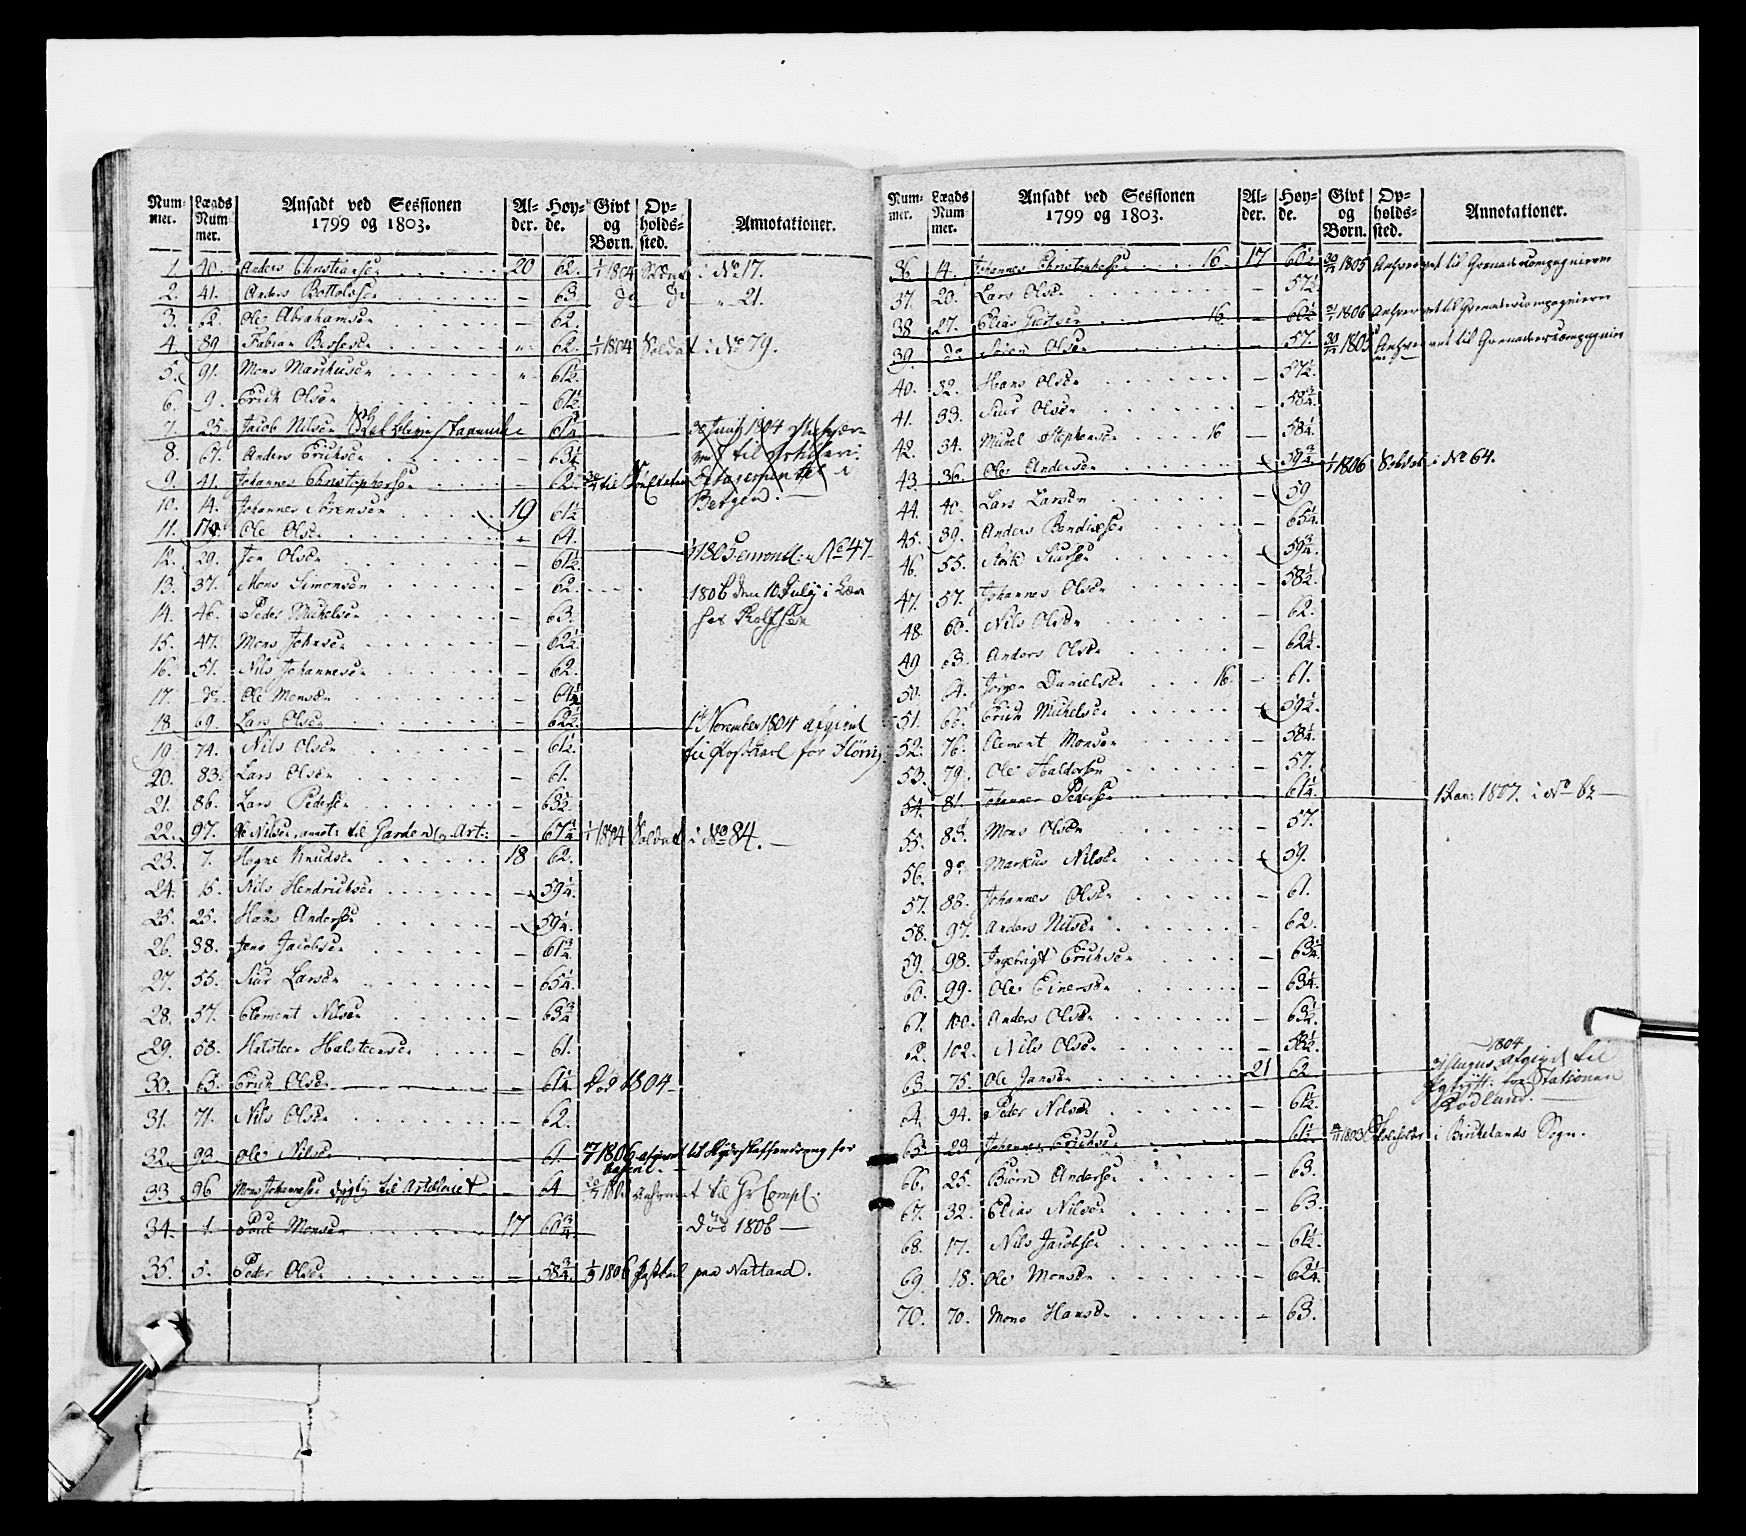 Num-mer. Lægds Num mer. Ansadt ved Sessionen 1799 og 1803. Al-der. Høy-de. Givt og Børn. Op-holds-sted. Annotationer.
1. 40. Anders Christiansen 20 62. 1/1 1804 i No 17.
2. 41. Anders Bottolvsen – 63 do do " 21.
3. 52. Ole Abrahamsen – 62.
4. 89. Fabian " 62. 1/1 1804 Soldat i No 79.
5. 91. Mons Marchusen " 61½.
6. 9. Erich Olsen 61½
7. 25. Jacob Nilsen 30 Juny 1804
8. 67. Anders Erichsen til Artilleri
9. 41. Johannes Christophersen 62.
10. 14. Johannes Sørensen 19 61½ Bergen.
11. Ole Olsen 64.
12. 29. Jon Olsen – 61½. No 47
13. 37. Mons Simonsen – 62. 1806 den 10 July i
14. 46. Peder Michelsen – 63.
15. 47. Mons Johnsen – 62½.
16. 51. Nils Johannesen – 62.
17. do Ole Monsen –
18. 69. Lars Olsen – 62½ November 1804 afgivet
19. 74. Nils Olsen – 61½. til Postkarl for
20. 83. Lars Olsen – 61.
21. 86. Lars Pedersen – 63½.
22. 97. Ole Nilsen, annot: til Garden og Art: – 1/1 1804 Soldat i No 84.
23. 7. Hogne Knudsen 18 62.
24. 15. Nils Hendrichsen – 59¼.
25. 25. Hans Andersen – 59¼.
26. 38. Jens Jacobsen – 61¾
27. 55. Siur Larsen – 65¼.
28. 57. Clement Nilsen – 63¾
29. 58. Halsteen Halsteensen – 61.
30. 65. Erich Olsen – 61¼ Død 1804
31. 71. Nils Olsen – 62.
32. 93. Ole Nilsen – 61. 1806 afgivet til for
33. 96 Mons Johannesen dygtig til Artilleriet – 64 til Gr Comp:
34. 1. Poul Monsen 17 60¾ Død 1806
35. 5. Peder Olsen – 58¾. 1806 Postkarl paa Nattland.
Num-mer. Lægds Num mer. Ansadt ved Sessionen 1799 og 1803. Al-der. Høy-de. Givt og Børn. Op-holds-sted. Annotationer.
36 14. Johannes Christophersen 16. 17 1805 til Grenadeercompagnierne
37. 20. Lars Olsen – 57½
38 27. Elias 16 – 1806 til Grenadeercompagnierne
39. do Søren Olsen – 57. 1805 til Grenadeercompagnierne
40. 32. Hans Olsen – 57½.
41. 33. Siur Olsen – 58¾.
42. 34. Michel Stephensen 16 – 58¼.
43. 36. Ole Andersen – 59¾ 1/1 1806 Soldat i No 64.
44. 40. Lars Larsen – 59
45. 39. Anders Bendixsen – 65¼.
46. 55. Siursen 59¾.
47. 57. Johannes Olsen – 58½.
48. 60. Nils Olsen – 62.
49 63. Anders Olsen – 62¼.
50. 64. Jørgen Danielsen 16. – 61.
51. 66. Erich Michelsen 59½.
52. 76. Clement Monsen – 58¼.
53. 79. Ole Haldorsen – 57.
54. 81. Johannes Pedersen – 61¼ 1 Jan: 1807. i No 62
55. 83. Mons Olsen – 57.
56. do Markus Nilsen 59.
57. 88. Johannes Olsen – 61.
58. 97. Anders Nilsen – 62.
59. 98. Ingebrigt Erichsen –
60. 99. Ole Einersen – 63¼.
61. 100. Anders Olsen – 63½.
62. 102. Nils Olsen – 58½. 1804
63. 75. Ole Jansen 21 62 31 August afgivet til
64. 94. Peder Nilsen – 61½. for Stationen Rødland.
65 29 Johannes Erichsen – 61½ 1803 i Birkelands Sogn.
66. 25. Biørn Andersen – 63.
67. 32. Elias Nilsen – 63.
68. 17. Nils Jacobsen – 61½.
69. 18. Ole Monsen – 62¼.
70. 70. Mons Hansen – 63.